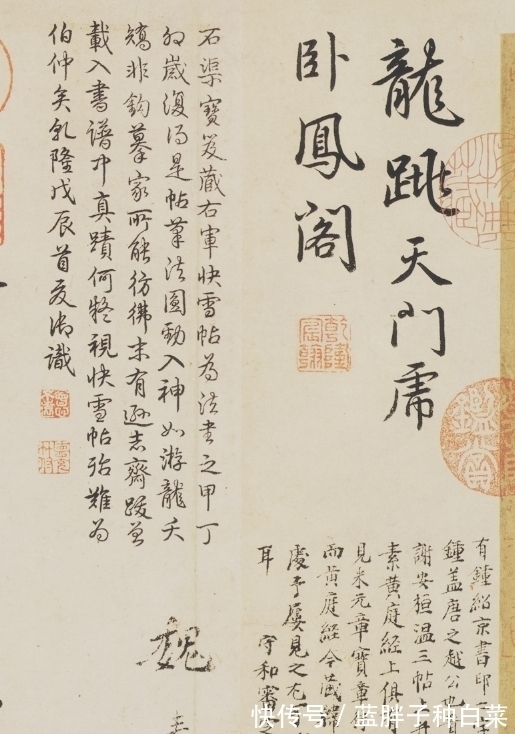 龍跳天門虎
卧鳳閣
乾隆宸翰
石渠寶笈藏右軍快雪帖為法書之甲丁
卯歲復得是帖筆法圓勁入神如游龍夭
矯非鉤摹家所能彷彿末有遜志齋跋曾
載入書譜中真蹟何疑視快雪帖殆難為
伯仲矣乾隆戊辰首夏御識
有鍾紹京書印一
鍾蓋唐之越公也
謝安桓温三帖上
素黄庭經上俱
見米元章寶章
而黄庭經今藏
處予屢見之尤
耳 守和審
魏
快传号/蓝胖子种白菜